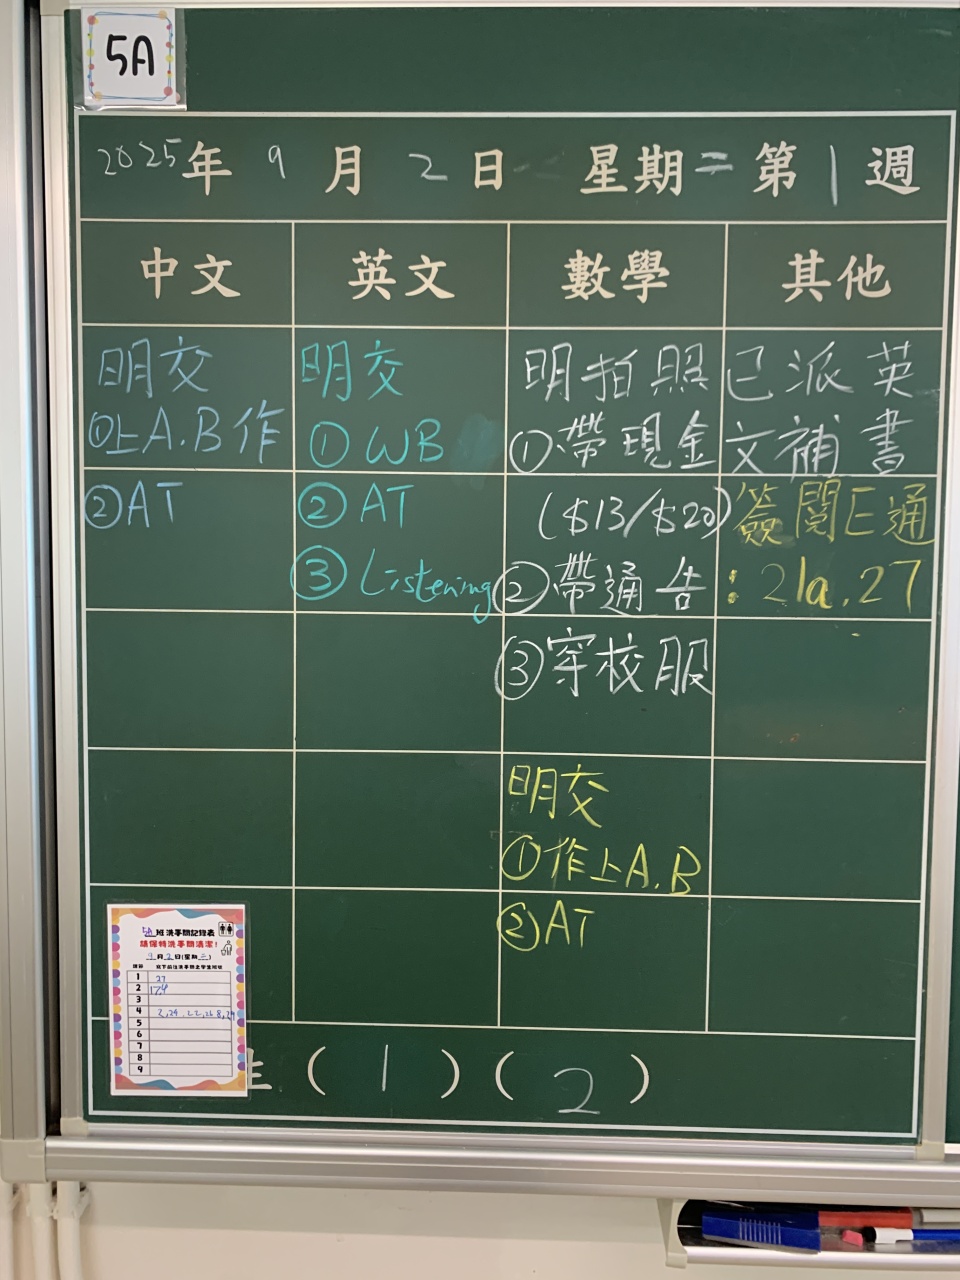 5A
2025年 9 月 2 日 星期二 第 1 週
中文 英文 數學 其他
明交
①上A.B作
②AT
明交
①WB
②AT
③Listening
明拍照
①帶現金
($13/$20)
②帶通告
③穿校服
明交
①作上A.B
②AT
已派英
文補書
簽閱E通
：21a.27
5A班洗手間記錄表
請保持洗手間清潔！
9月2日(星期二)
1 27
2
3
4
5
6
7
8
9
生 ( 1 ) ( 2 )